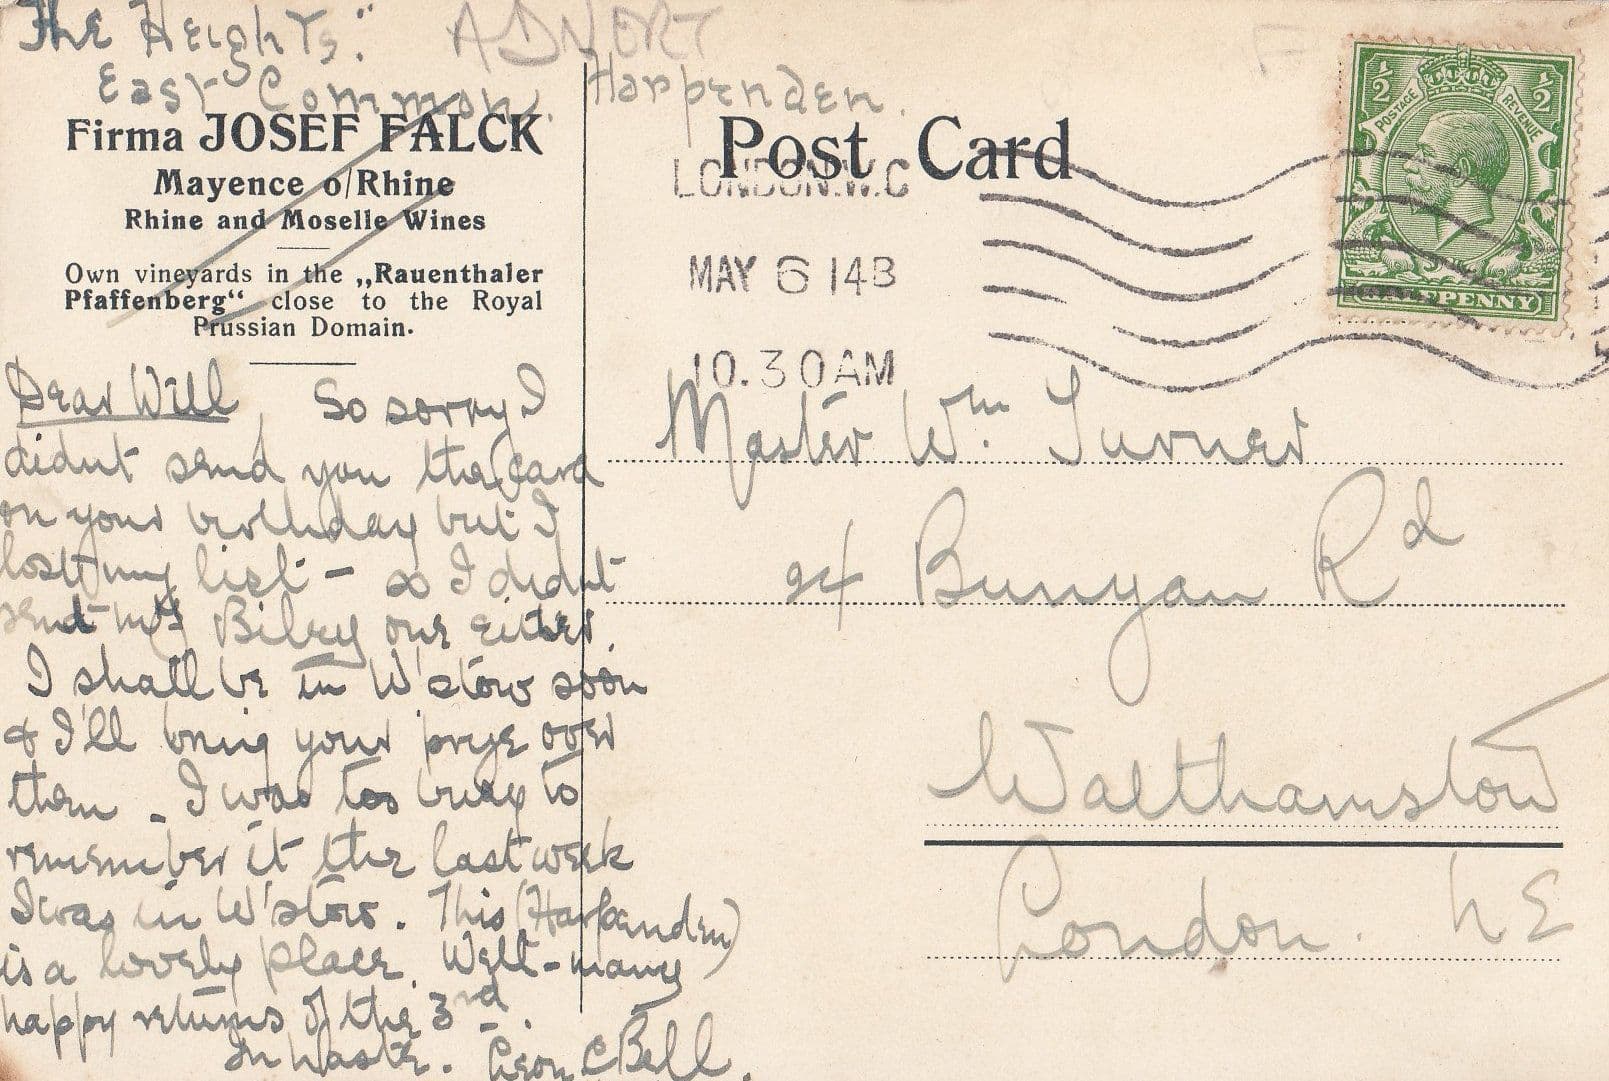 "The Heights."
ADVERT
East Common, Harpenden.
Firma JOSEF FALCK
Mayence o/Rhine
Rhine and Moselle Wines
Own vineyards in the „Rauenthaler
Pfaffenberg“ close to the Royal
Prussian Domain.
Dear Will, So sorry I
didnt send you the card
on your birthday but I
lost my list – so I didnt
send Bilry one either.
I shall be in W'stow soon
& I'll bring your prize over
then – I was too busy to
remember it the last week
I was in W'stow. This (Harpenden)
is a lovely place. Well – many
happy returns of the 3rd.
In haste. C Bell.
Post Card
LONDON.W.C
MAY 6 14B
10.30AM
½ POSTAGE REVENUE ½
HALFPENNY
Master Wm. Turner
94 Bunyan Rd
Walthamstow
London. N E